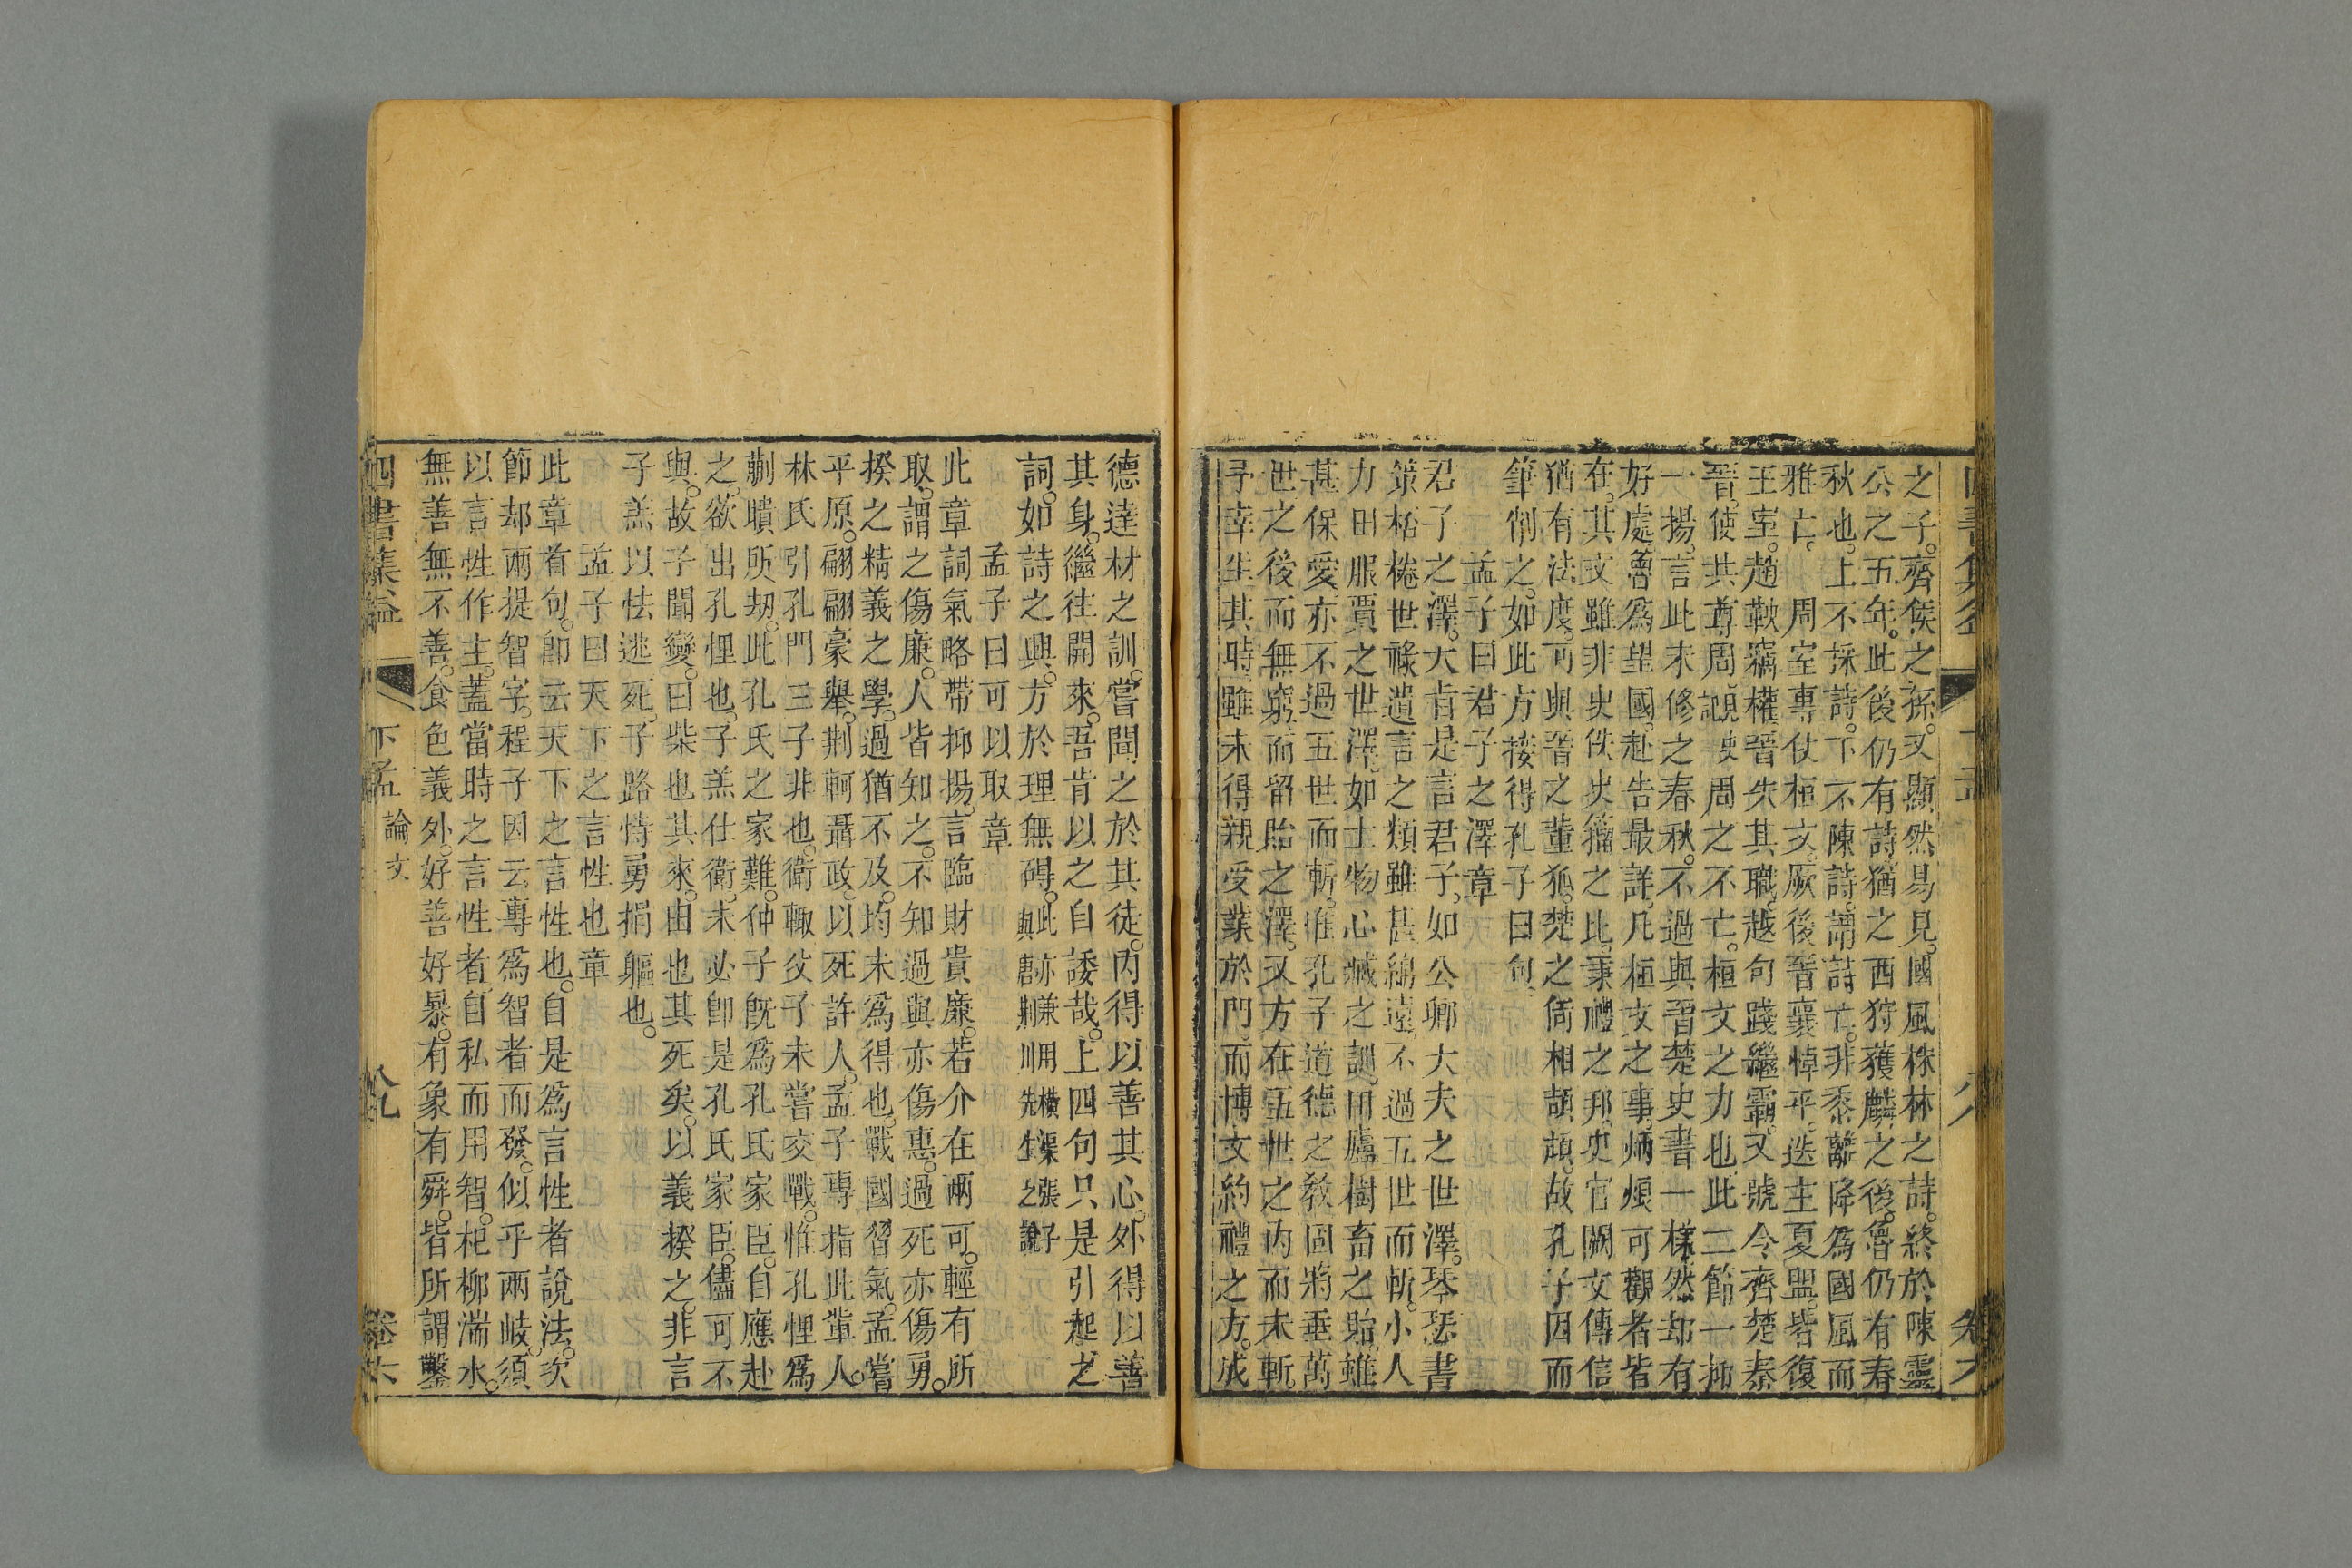 之子。齊侯之孫。又顯然易見。國風株林之詩。終於陳靈
公之五年。此後仍有詩。猶之西狩獲麟之後。魯仍有春
秋也。上不採詩。下不陳詩。謂詩亡。非黍離降為國風而
雅亡。周室專仗桓文。厥後晉襄悼平。迭主夏盟。皆復
王室。趙鞅竊權。晉失其職。越句踐繼霸。又號令齊楚秦
晉。使共尊周。周之不亡。桓文之力也。此二節一抑
一揚。言此未修之春秋。不過與晉楚史書一樣。然却有
好處。魯為望國。赴告最詳。凡桓文之事。炳煩可觀者皆
在。其文雖非史佚史籀之比。秉禮之邦。史官闕文傳信
猶有法度。可與晉之董狐。楚之倚相頡頏。故孔子因而
筆削之。如此方接得孔子曰句
孟子曰君子之澤章
君子之澤。大旨是言君子。如公卿大夫之世澤。琴瑟書
策桮棬世祿遺言之類。雖甚綿遠。不過五世而斬。小人
力田服賈之世澤。如土物心臧之訓。田廬樹畜之貽。雖
甚保愛。亦不過五世而斬。惟孔子道德之教。固將垂萬
世之後而無窮。而留貽之澤。又方在五世之內而未斬
予幸生其時。雖未得親受業於門。而博文約禮之方。成
四書集益 下孟 八 卷六
德達材之訓。嘗聞之於其徒。內得以善其心。外得以善
其身。繼往開來。吾肯以之自諉哉。上四句只是引起之
詞。如詩之興。方於理無碍。此亦兼用橫渠張子與唐荆川先生之說
孟子曰可以取章
此章詞氣略帶抑揚。言臨財貴廉。若介在兩可。輕有所
取。謂之傷廉。人皆知之。不知過與亦傷惠。過死亦傷勇。
揆之精義之學。過猶不及。均未為得也。戰國習氣。孟嘗
平原。翩翩豪舉。荆軻聶政。以死許人。孟子專指此輩人。
林氏引孔門三子非也。衛輒父子未嘗交戰。惟孔悝為
蒯聵所刼。此孔氏之家難。仲子既為孔氏家臣。自應赴
之。欲出孔悝也。子羔仕衛。未必即是孔氏家臣。儘可不
與。故子聞變。曰柴也其來。由也其死矣。以義揆之。非言
子羔以怯逃死。子路恃勇捐軀也。
孟子曰天下之言性也章
此章首句。即云天下之言性也。自是為言性者說法。次
節却兩提智字。程子因云專為智者而發。似乎兩岐。須
以言性作主。蓋當時之言性者。自私而用智。杞柳湍水。
無善無不善。食色義外。好善好暴。有象有舜。皆所謂鑿
四書集益 下孟 論文 九 卷六